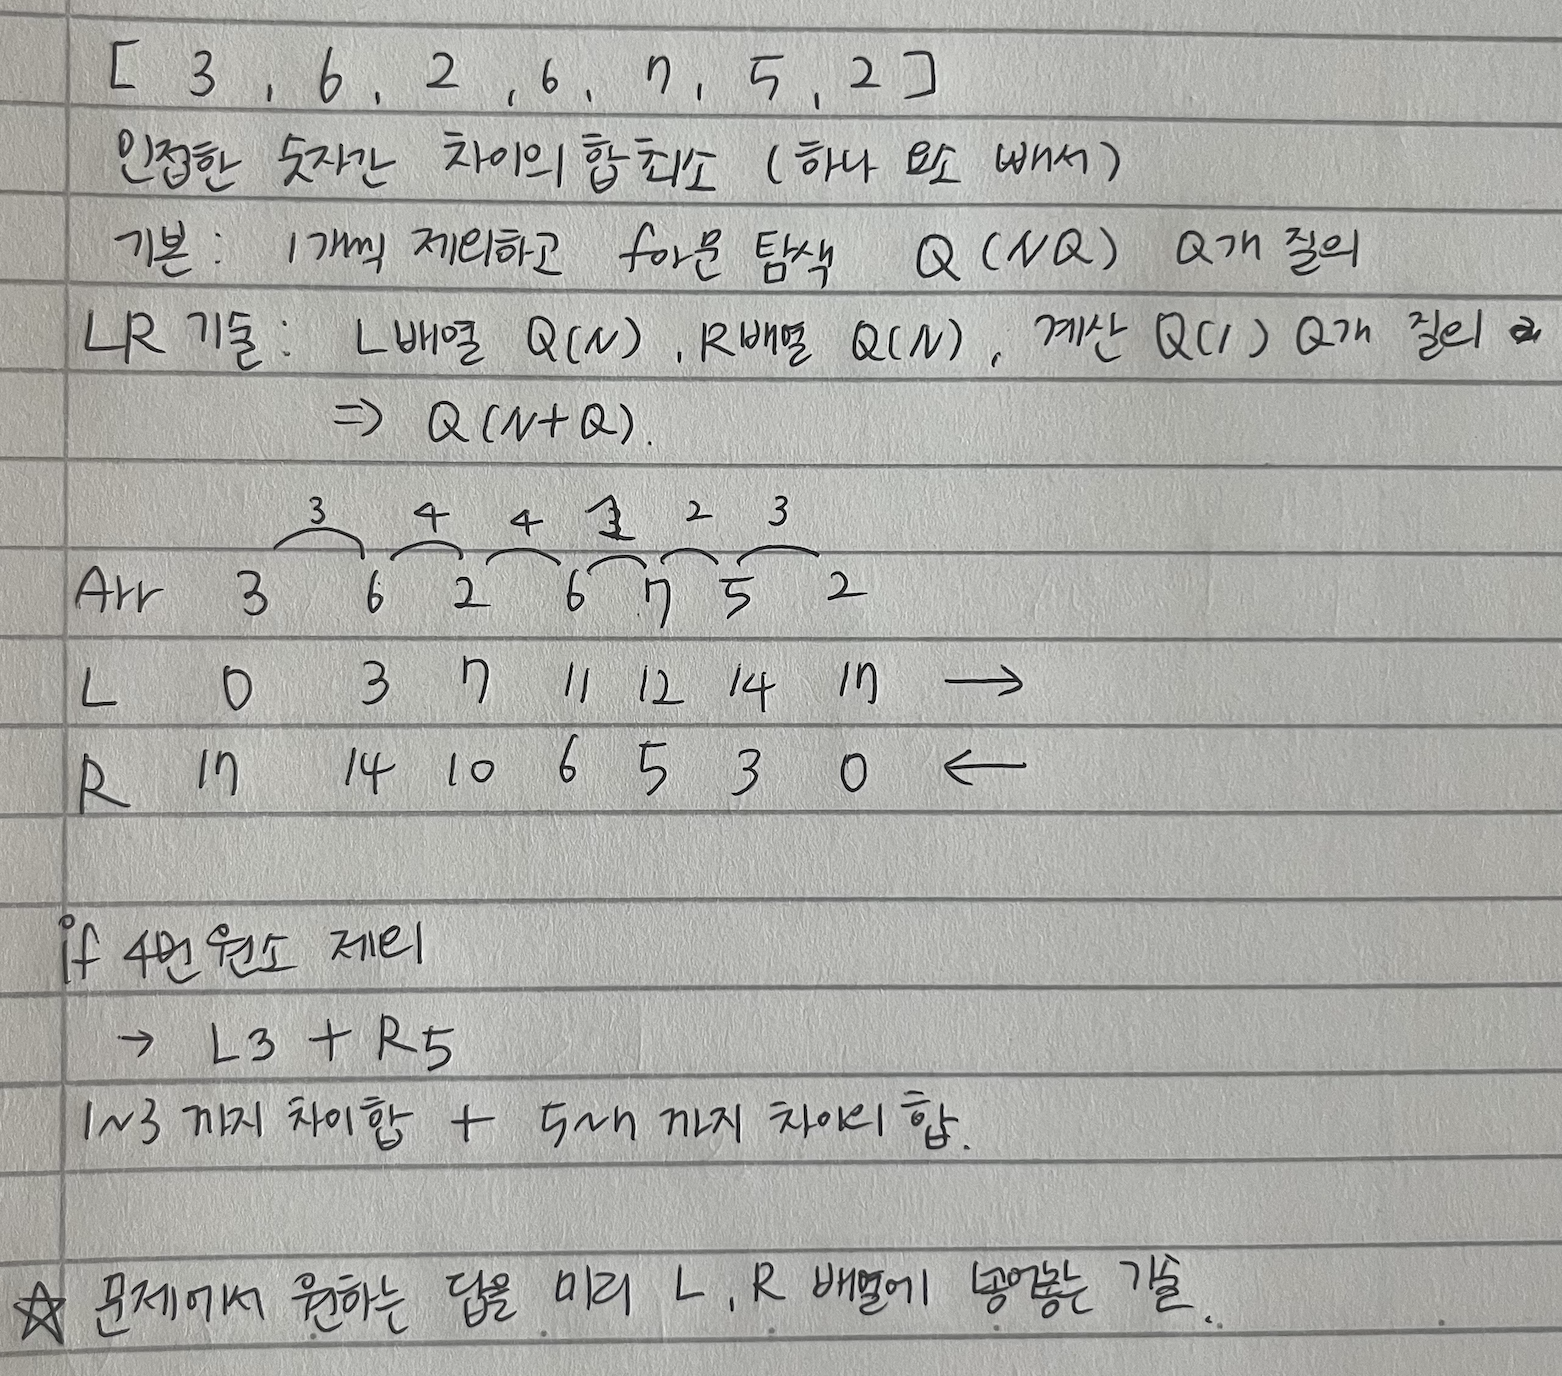 [ 3 , 6 , 2 , 6 , 7 , 5 , 2 ]
인접한 숫자간 차이의 합 최소 (하나 요소 빼서)
기본 : 1개씩 제외하고 for문 탐색 Q (NQ) Q개 질의
LR 기술 : L배열 Q(N) , R배열 Q(N) , 계산 Q(1) Q개 질의
⇒ Q (N+Q).
3 4 4 1 2 3
Arr 3 6 2 6 7 5 2
L 0 3 7 11 12 14 17 →
R 17 14 10 6 5 3 0 ←
if 4번 원소 제외
→ L3 + R5
1~3 까지 차이합 + 5~7 까지 차이의 합.
☆ 문제에서 원하는 답을 미리 L, R 배열에 넣어놓는 기술..